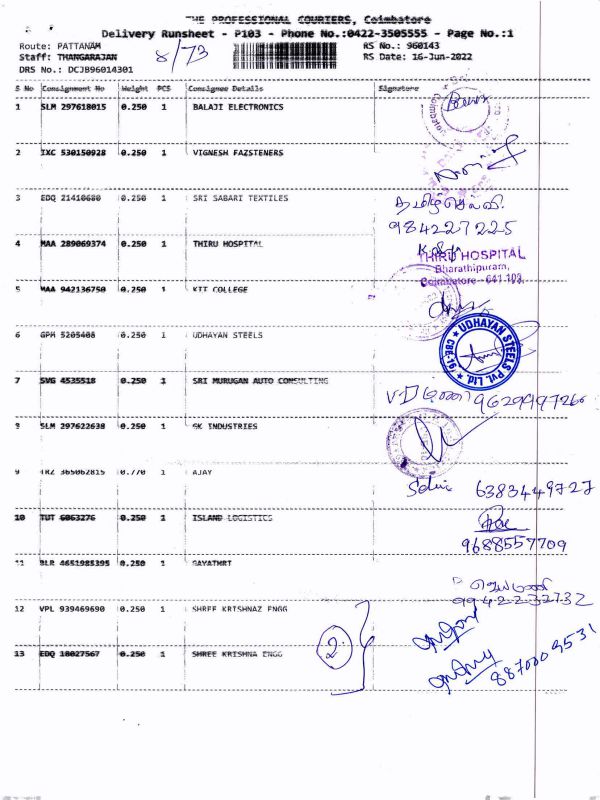 THE PROFESSIONAL COURIERS, Coimbatore
Delivery Runsheet - P103 - Phone No.:0422-3505555 - Page No.:1
Route: PATTANAM
RS No.: 960143
Staff: THANGARAJAN
8/73
RS Date: 16-Jun-2022
DRS No.: DCJB96014301
S No Consignment No Weight PCS Consignee Details Signature
1 SLM 297618015 0.250 1 BALAJI ELECTRONICS
2 IXC 530150928 0.250 1 VIGNESH FAZSTENERS
3 EDQ 21410680 0.250 1 SRI SABARI TEXTILES
தமிழ்செல்வி
984227225
4 MAA 289069374 0.250 1 THIRU HOSPITAL
THIRU HOSPITAL
Bharathipuram,
Coimbatore - 641 103
5 MAA 942136750 0.250 1 KIT COLLEGE
6 GPH 5205408 0.250 1 UDHAYAN STEELS
UDHAYAN STEELS Pvt. Ltd.
7 SVG 4535518 0.250 1 SRI MURUGAN AUTO CONSULTING
8 SLM 297622638 0.250 1 GK INDUSTRIES
9 TRZ 365062815 0.770 1 AJAY
6383449727
10 TUT 6063276 0.250 1 ISLAND LOGISTICS
9688557709
11 BLR 4651985395 0.250 1 GAYATHRI
9942232732
12 VPL 939469690 0.250 1 SHREE KRISHNAZ ENGG
2
13 EDQ 18027567 0.250 1 SHREE KRISHNA ENGG